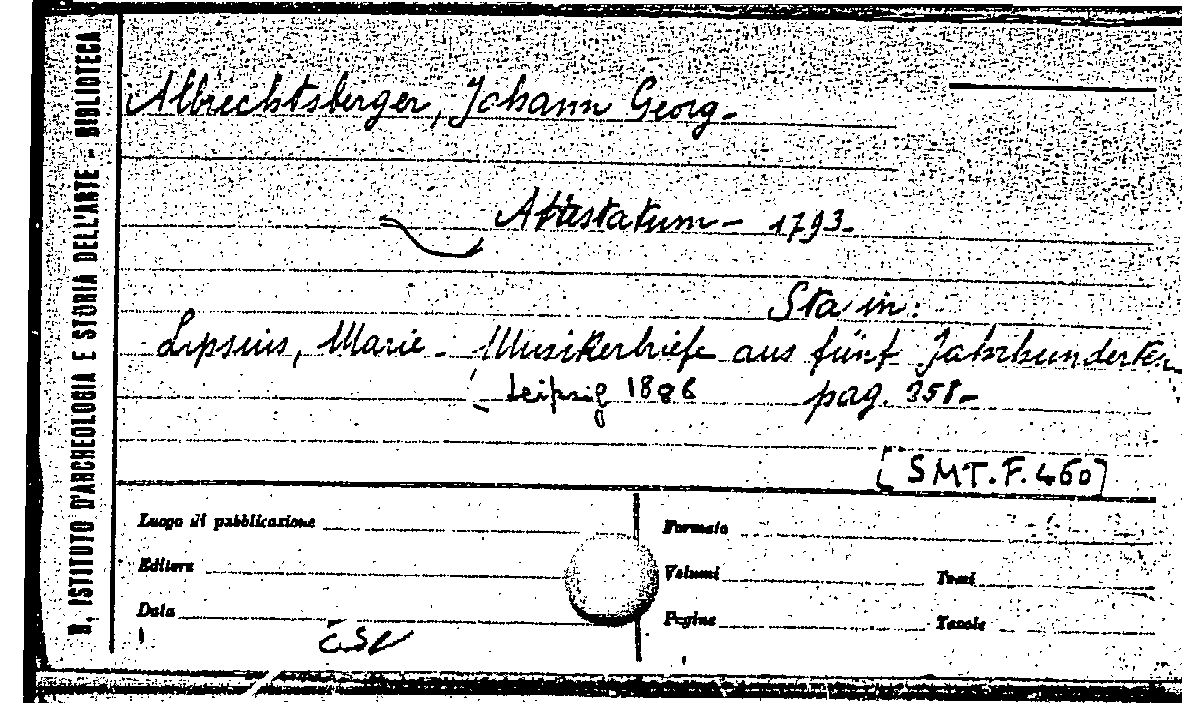 R. ISTITUTO D'ARCHEOLOGIA E STORIA DELL'ARTE - BIBLIOTECA
Albrechtsberger, Johann Georg-
Attestatum - 1793-
Sta in:
Lipsius, Marie - Musikerbriefe aus fünf Jahrhunderten
Leipzig 1886 pag. 358-
[SMT.F.460]
Luogo di pubblicazione
Formato
Editore
Volumi
Tomi
Data
Pagine
Tavole